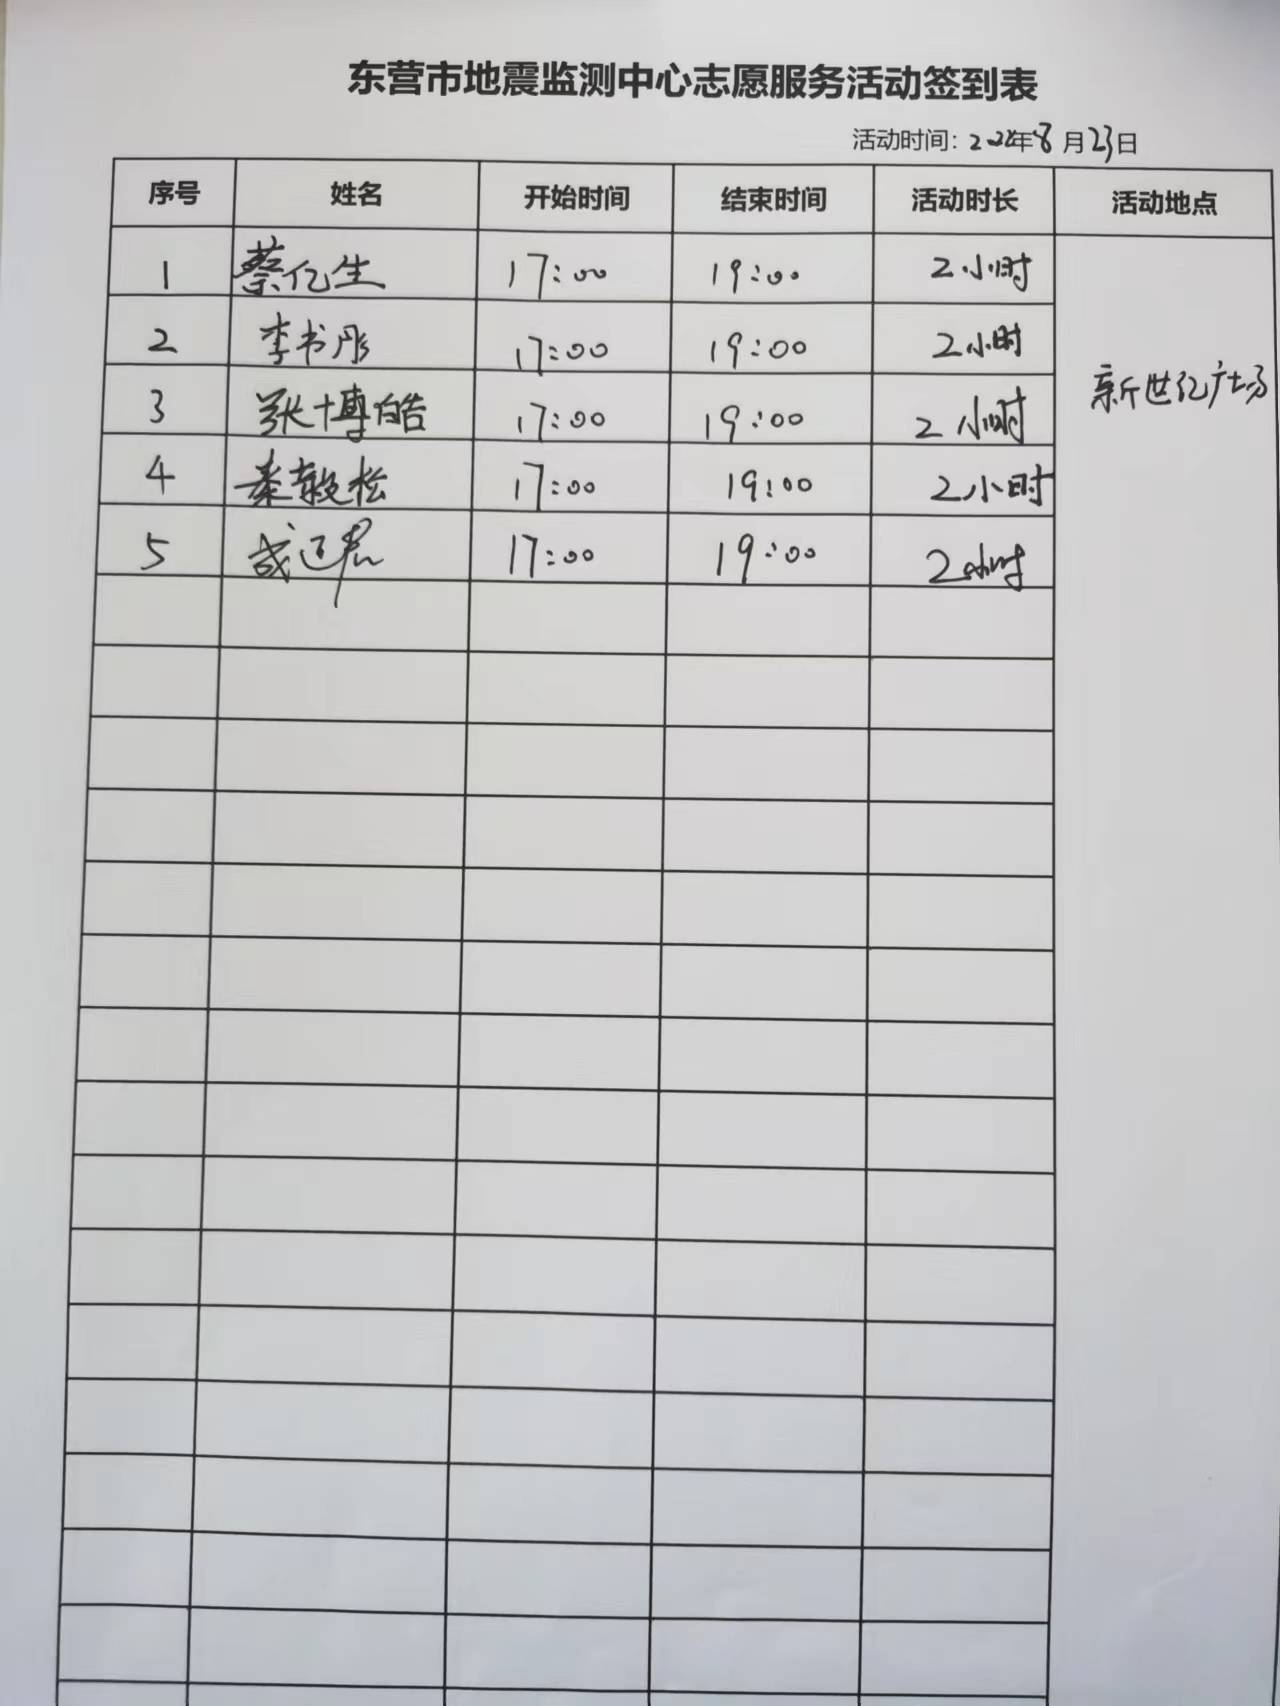 东营市地震监测中心志愿服务活动签到表
活动时间：年8月23日
序号 姓名 开始时间 结束时间 活动时长 活动地点
1 蔡亿生 17:00 19:00 2小时
2 李书彤 17:00 19:00 2小时
新世纪广场
3 张博皓 17:00 19:00 2小时
4 秦毅松 17:00 19:00 2小时
5 17:00 19:00 2小时